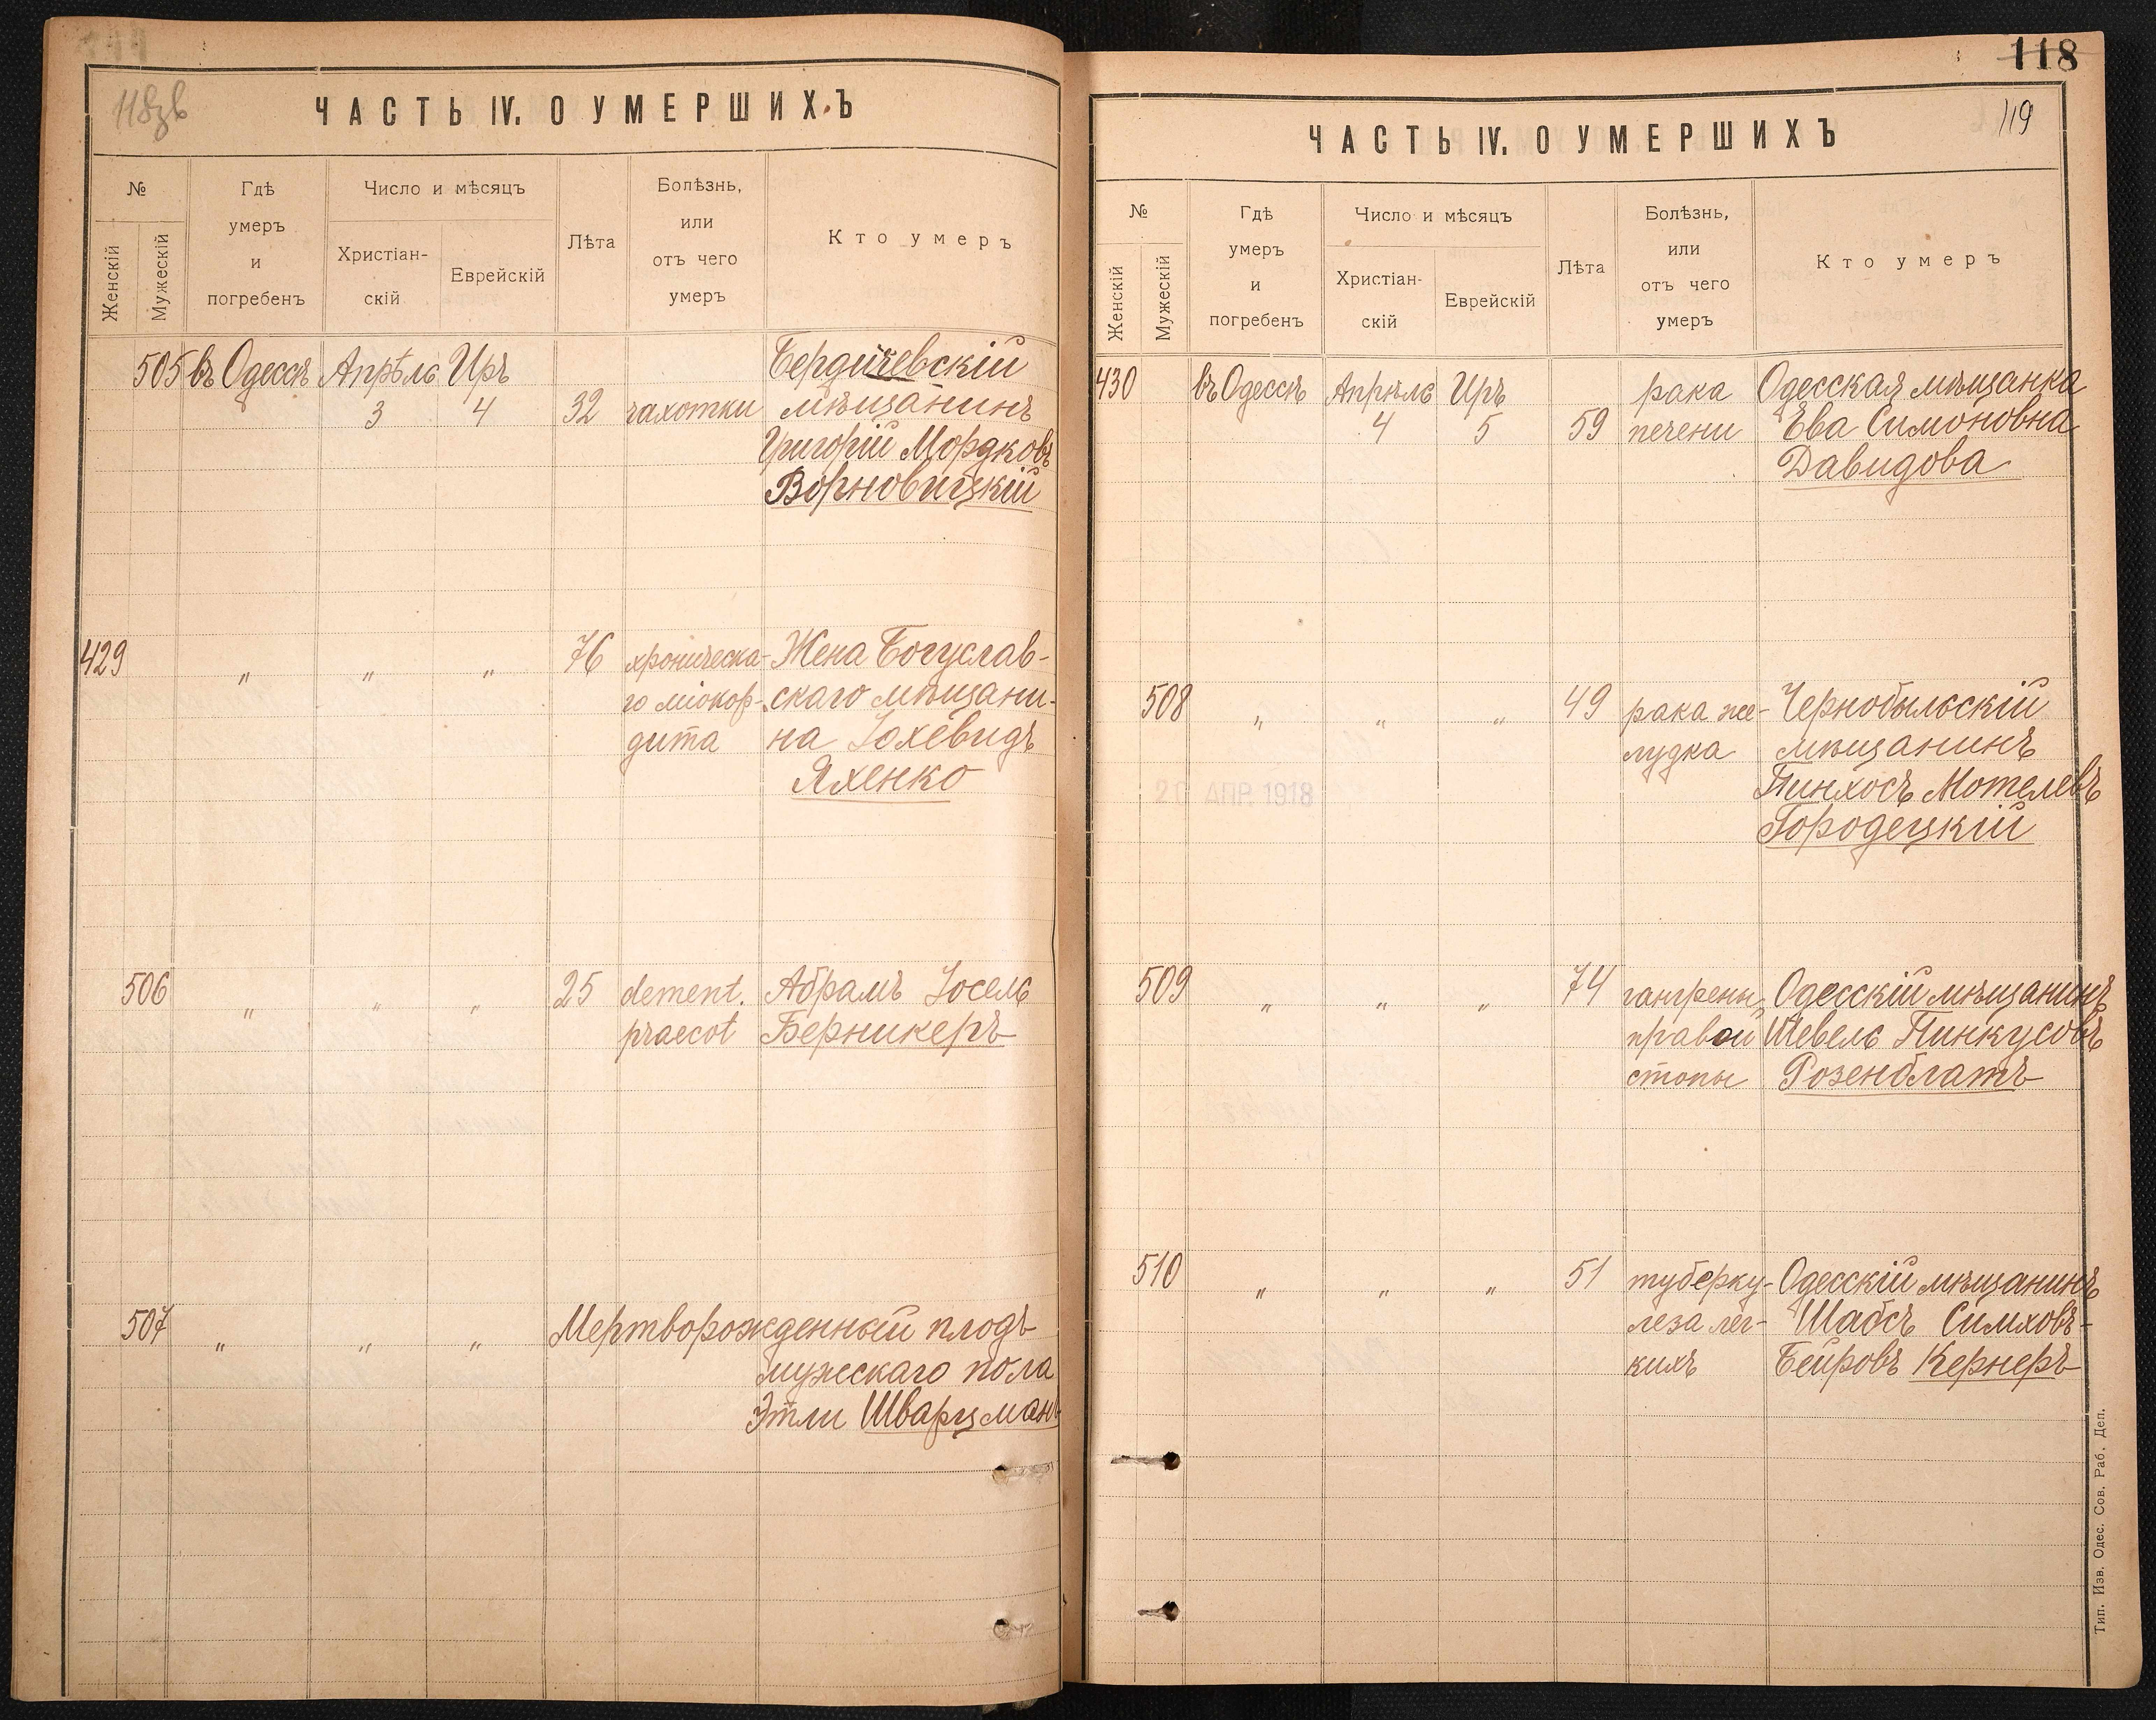 118зв
ЧАСТЬ IV. О УМЕРШИХЪ
№
Женскій
Мужескій
Гдѣ
умеръ
и
погребенъ
Число и мѣсяцъ
Христіан-
скій
Еврейскій
Лѣта
Болѣзнь,
или
отъ чего
умеръ
Кто умеръ
505 въ Одессѣ Апрѣль Иръ Бердичевскій
3 4 32 чахотки мѣщанинъ
Григорій Мордковъ
Ворновицкій
429 " " " 76 хроническа- Жена Богуслав-
го міокар- скаго мѣщани-
дита на Іохевидъ
Яхенко
506 " " " 25 dement. Абрамъ Іосель
praecot Берникеръ
507 " " " Мертворожденный плодъ
мужескаго пола
Этли Шварцманъ
118
119
ЧАСТЬ IV. О УМЕРШИХЪ
№
Женскій
Мужескій
Гдѣ
умеръ
и
погребенъ
Число и мѣсяцъ
Христіан-
скій
Еврейскій
Лѣта
Болѣзнь,
или
отъ чего
умеръ
Кто умеръ
430 въ Одессѣ Апрѣль Иръ рака Одесская мѣщанка
4 5 59 печени Ева Симоновна
Давидова
508 " " " 49 рака же- Чернобыльскій
лудка мѣщанинъ
Пинхосъ Мотелевъ
Городецкій
АПР. 1918
509 " " " 74 гангрены Одесскій мѣщанинъ
правой Шевель Пинкусовъ
стопы Розенблатъ
510 " " " 51 туберку- Одесскій мѣщанинъ
леза лег- Шабсъ Симховъ-
кихъ Беировъ Кернеръ
Тип. Изв. Одес. Сов. Раб. Деп.